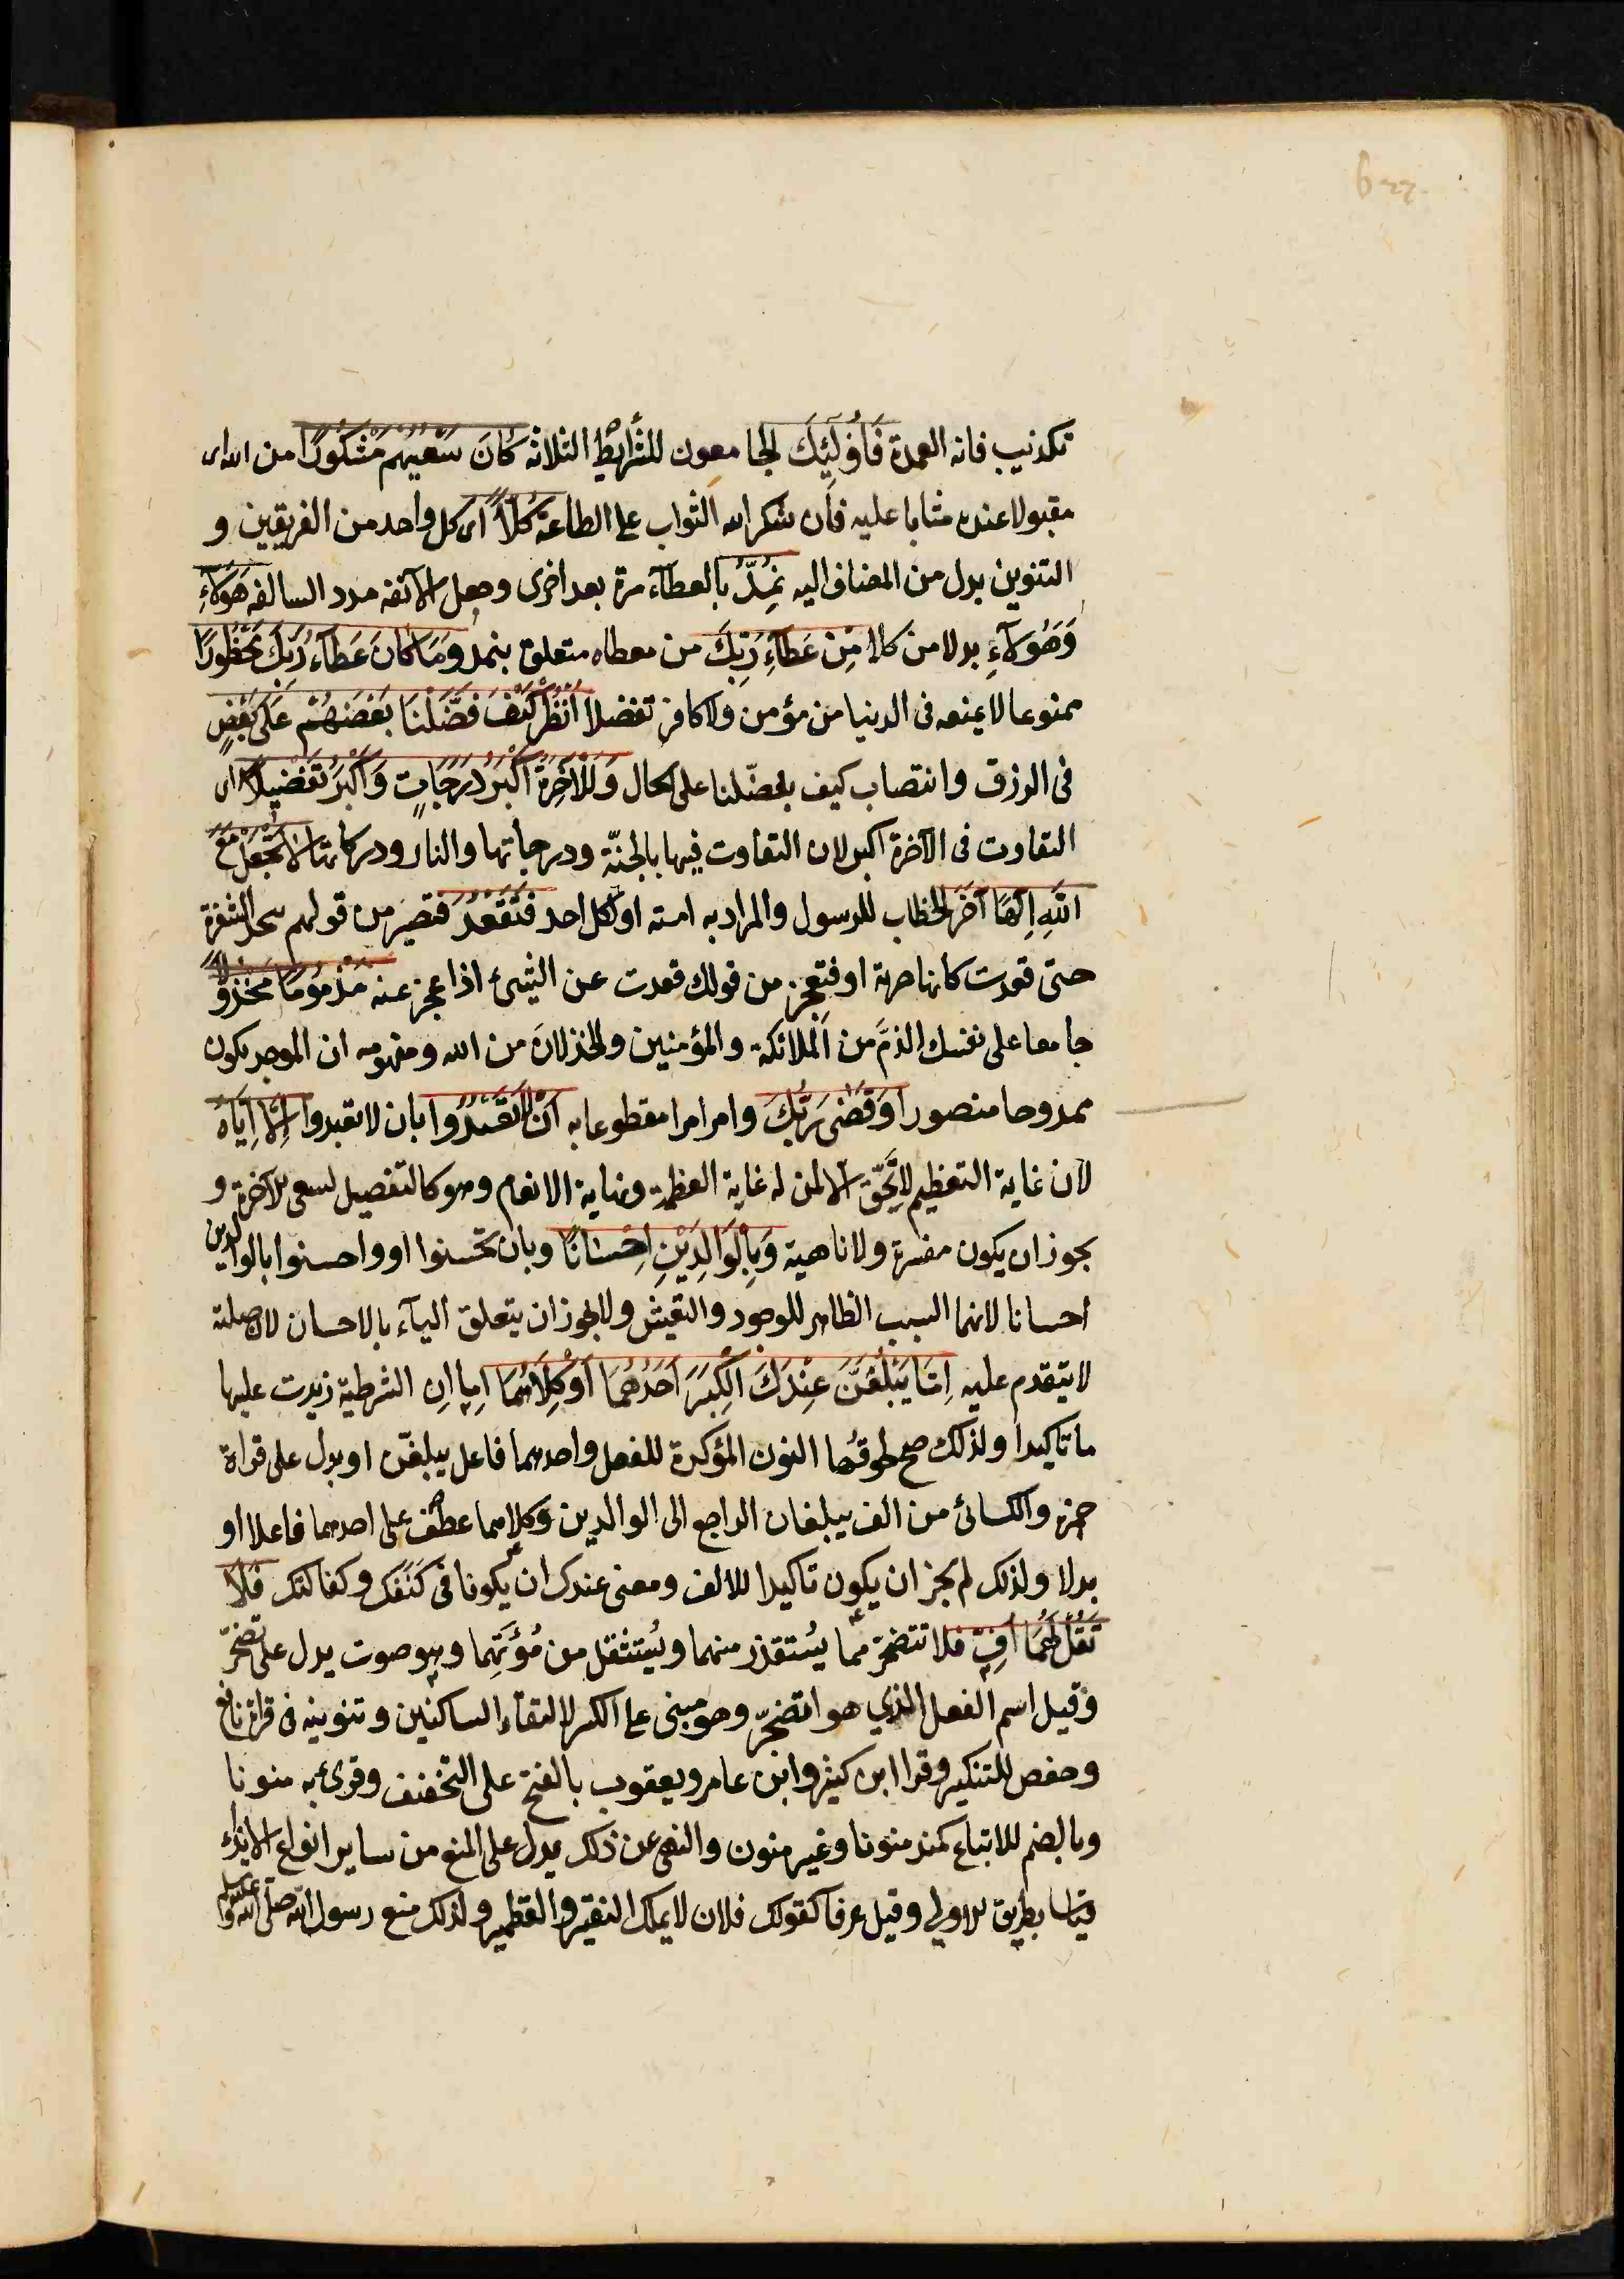 تكذيب فانه العمدة فَأُولَٰئِكَ الجامعون للشرايط الثلاثه كَانَ سَعْيُهُمْ مَشْكُورًا من الله اى
مقبولا عنده مثابا عليه فان شكر الله الثواب على الطاعة كُلًّا اى كل واحد من الفريقين و
التنوين بدل من المضاف اليه نُمِدُّ بالعطآء مرة بعد اخرى وجعل الآنفه مدد السالفه هَؤُلَآءِ
وَهَؤُلَآءِ بدلا من كلا مِنْ عَطَآءِ رَبِّكَ من معطاه متعلق بنمد وَمَا كَانَ عَطَآءُ رَبِّكَ مَحْظُورًا
ممنوعا لا يمنعه فى الدنيا من مؤمن ولا كافر تفضلا اُنْظُرْ كَيْفَ فَضَّلْنَا بَعْضَهُمْ عَلَى بَعْضٍ
فى الرزق وانتصاب كيف بفضّلنا على الحال وَلَلْآخِرَةُ اَكْبَرُ دَرَجَاتٍ وَاَكْبَرُ تَفْضِيلًا اى
التفاوت فى الآخرة اكبر لان التفاوت فيها بالجنّة ودرجاتها والنار ودركاتها لَا تَجْعَلْ مَعَ
اللَّهِ اِلَهًا آخَرَ الخطاب للرسول والمراد به امته او لكل احد فَتَقْعُدَ فتصير من قولهم شحذ الشفرة
حتى قعدت كانها حربة او فتعجز من قولك قعدت عن الشئ اذا عجز عنه مَذْمُومًا مَخْذُولًا
جامعا على نفسك الذمَّ من الملائكة والمؤمنين والخذلانَ من الله ومفهومه ان الموحد يكون
ممدوحا منصورا وَقَضَى رَبُّكَ وامر امرا مقطوعا به اَنْ لَا تَعْبُدُوا بان لا تعبدوا اِلَّا اِيَّاهُ
لان غاية التعظيم لا تَحِقّ الا لمن له غاية العظمة ونهاية الانعام وهو كالتفصيل لسعى الآخرة و
يجوز ان يكون مفسرة ولا ناهية وَبِالْوَالِدَيْنِ اِحْسَانًا وبان تحسنوا او واحسنوا بالوالدين
احسانا لانهما السبب الظاهر للوجود والتعيش ولا يجوز ان يتعلق اليآء بالاحسان لان صلته
لا يتقدم عليه اِمَّا يَبْلُغَنَّ عِنْدَكَ الْكِبَرَ اَحَدُهُمَا اَوْ كِلَاهُمَا اِما اِن الشرطية زيدت عليها
ما تاكيدا ولذلك صح لحوقُها النون المؤكدة للفعل واحدهما فاعل يبلغنّ او بدل على قراة
حمزه والكسائى من الف يبلغان الراجع الى الوالدين وكلاهما عطف على احدهما فاعلا او
بدلا ولذلك لم يجز ان يكون تاكيدا للالف ومعنى عندك ان يكونا فى كنفك وكفالتك فَلَا
تَقُلْ لَهُمَا اُفٍّ فلا تتضجّر مما يُستقذر منهما ويُستثقل من مُؤَنِهما وهو صوت يدل على تضجّر
وقيل اسم الفعل الذي هو اتضجّر وهو مبنى على الكسر لالتقاء الساكنين وتنوينه فى قراة نافع
وحفص للتنكير وقرا ابن كثير وابن عامر ويعقوب بالفتح على التخفيف وقرئ به منونا
وبالضم للاتباع كمنذ منونا وغير منون والنهى عن ذلك يدل على المنع من ساير انواع الايذاء
قياسا بطريق الاولى وقيل عرفا كقولك فلان لا يملك النقير والقطمير ولذلك منع رسول الله صلى الله عليه وسلم